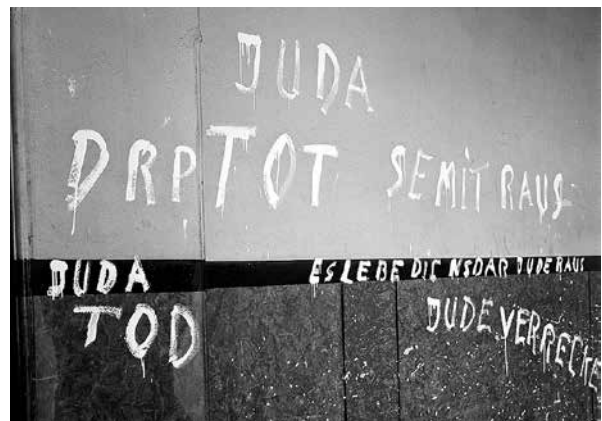 JUDA
DRP TOT SEMIT RAUS
JUDA ES LEBE DIE NSDAR JUDE RAUS
TOD JUDE VERRECKE